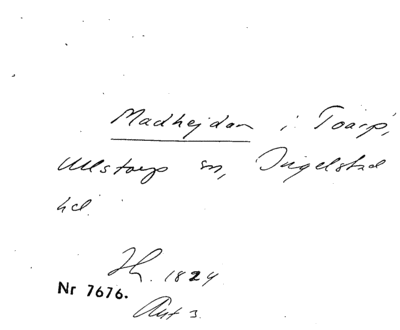 Madhejdan i Toarp,
Ullstorp sn, Ingelstad
hd.
Th. 1824
Nr 7676.
Akt 3.